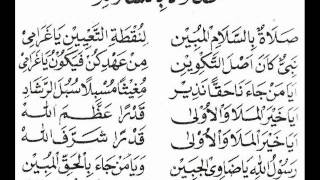 صَلَاةٌ بِالسَّلَامِ الْمُبِينِ لِنُقْطَةِ التَّعْيِينِ يَاغَرَامِي
نَبِيٌّ كَانَ اَصْلَ التَّكْوِينِ مِنْ عَهْدِ كُنْ فَيَكُونُ يَاغَرَامِي
اَيَامَنْ جَاءَ نَاحَقًّا نَذِيْر مُغِيْثًا مُسْبِلًا سُبُلَ الرَّشَادِ
اَيَاخَيْرَ الْمَلَا وَالْأُوْلَى قَدْرًا عَظَّمَ اللهُ
اَيَاخَيْرَ الْمَلَا وَالْأُوْلَى قَدْرًا شَرَّفَ اللهُ
رَسُوْلُ اللهِ يَاضَاوِى الْجَبِيْنِ وَيَامَنْ جَاءَ بِالْحَقِّ الْمُبِيْنِ